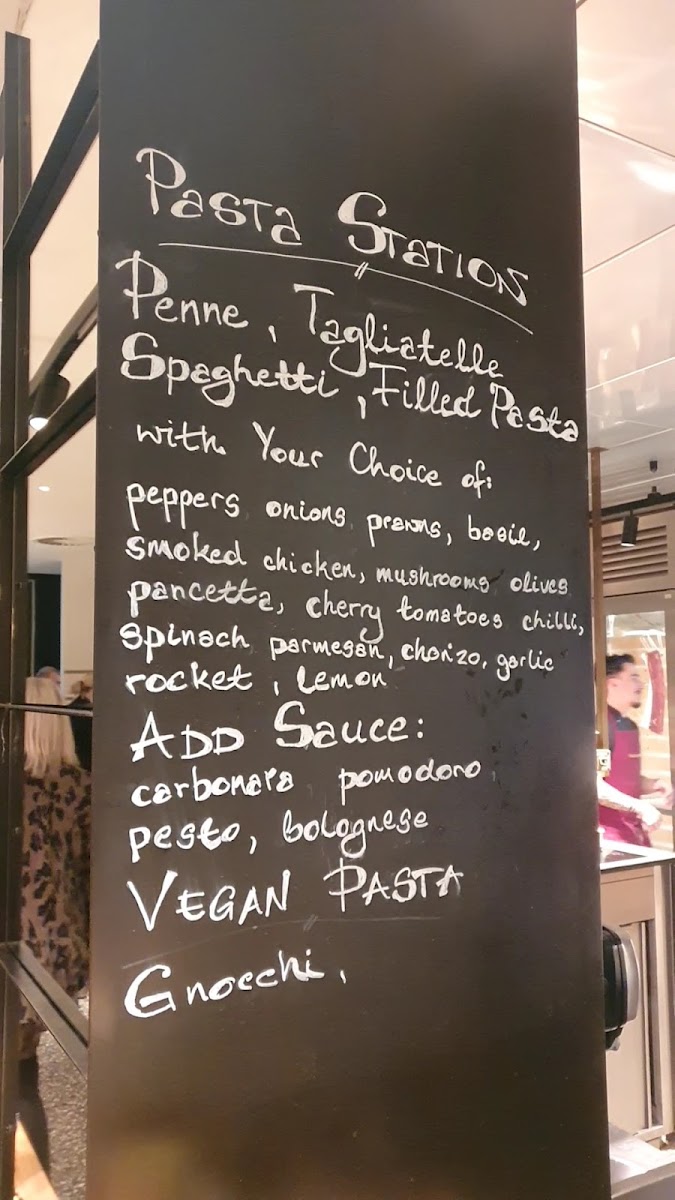 PASTA STATION
Penne, Tagliatelle
Spaghetti, Filled Pasta
with Your Choice of:
peppers onions prawns, basil,
smoked chicken, mushrooms olives
pancetta, cherry tomatoes chilli,
spinach parmesan, chorizo, garlic
rocket, lemon
ADD Sauce:
carbonara pomodoro,
pesto, bolognese
VEGAN PASTA
Gnocchi,